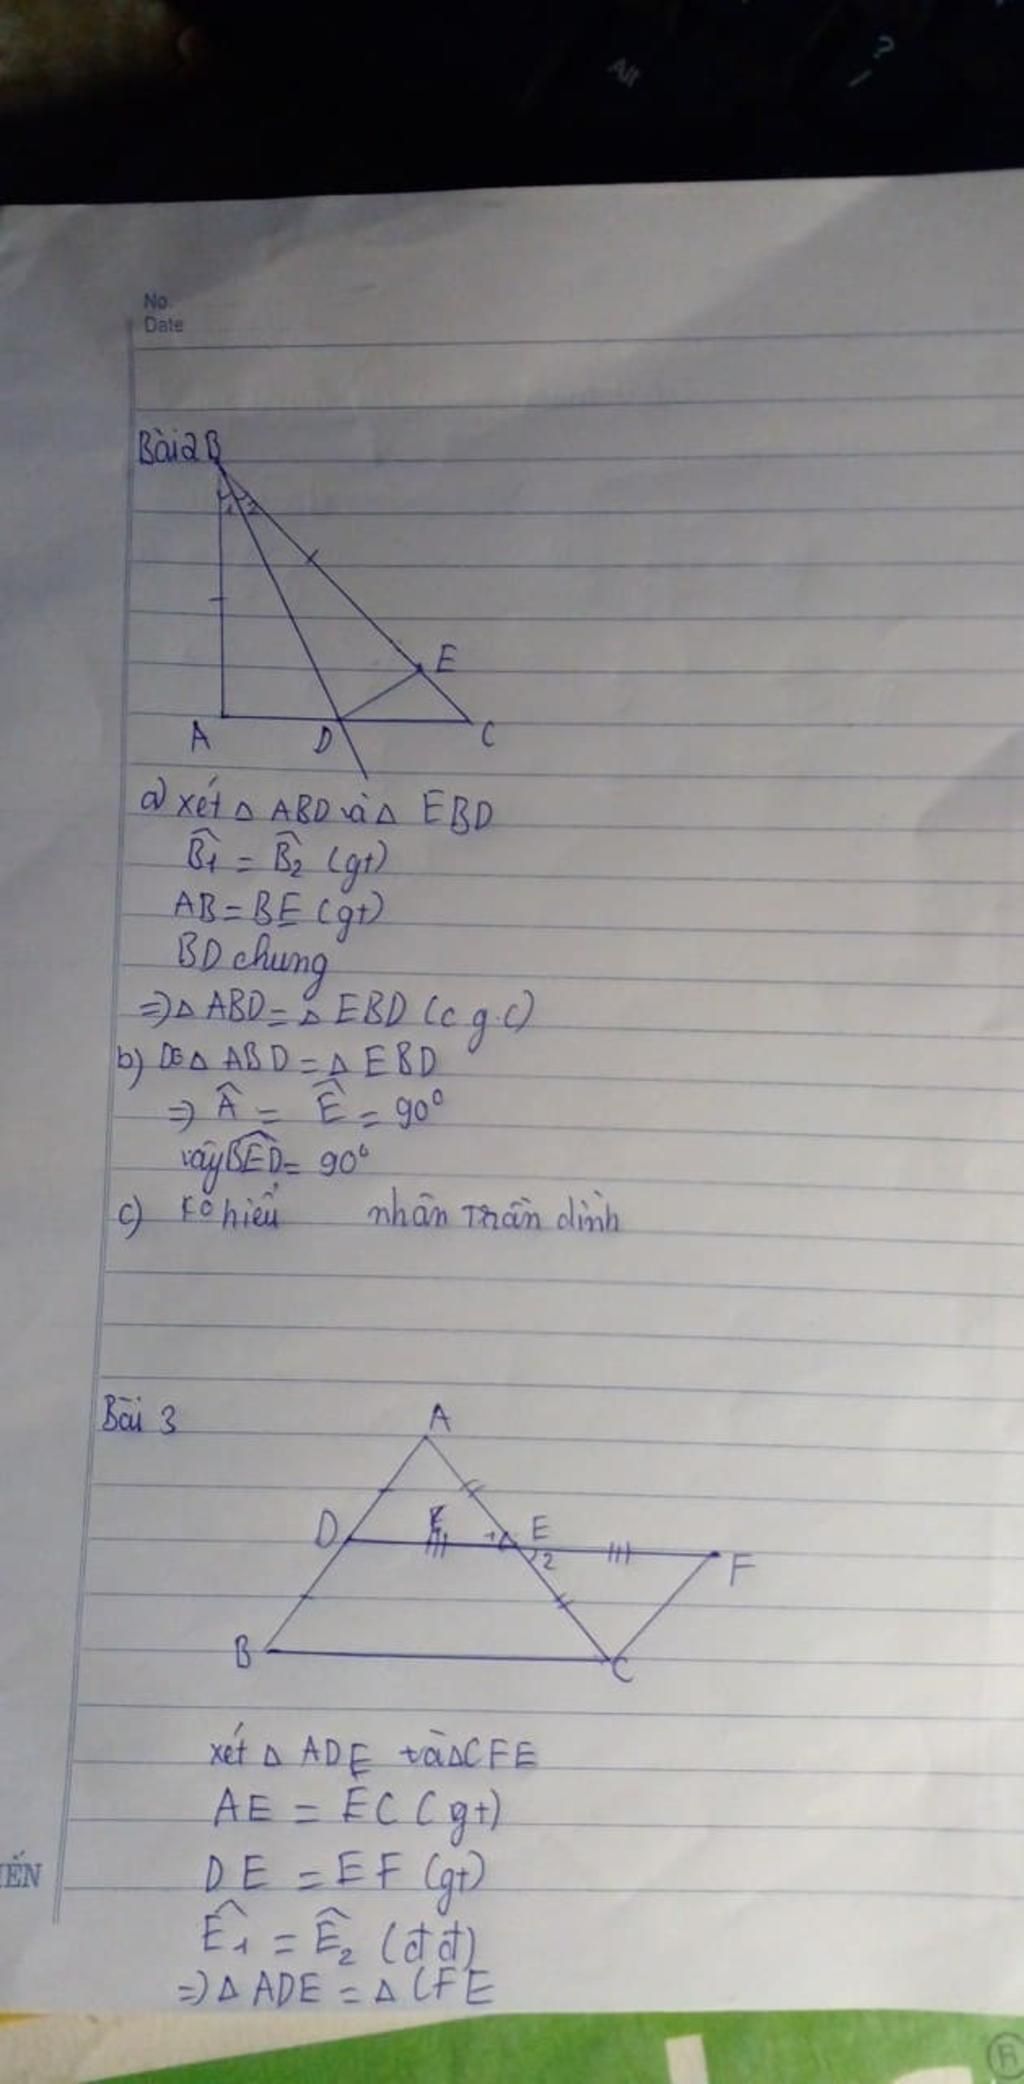 Alt
?
/
No.
Date
Bài 2 B
1 2
E
A D C
a) xét Δ ABD và Δ EBD
B̂1 = B̂2 (gt)
AB = BE (gt)
BD chung
=> Δ ABD = Δ EBD (c g.c)
b) Δ ABD = Δ EBD
=> Â = Ê = 90°
vậy BED = 90°
c) Ko hiểu nhân Trần dình
Bài 3
A
D 1 E
2 F
B C
xét Δ ADE và Δ CFE
AE = EC (gt)
DE = EF (gt)
ẾN
Ê1 = Ê2 (đđ)
=> Δ ADE = Δ CFE
R